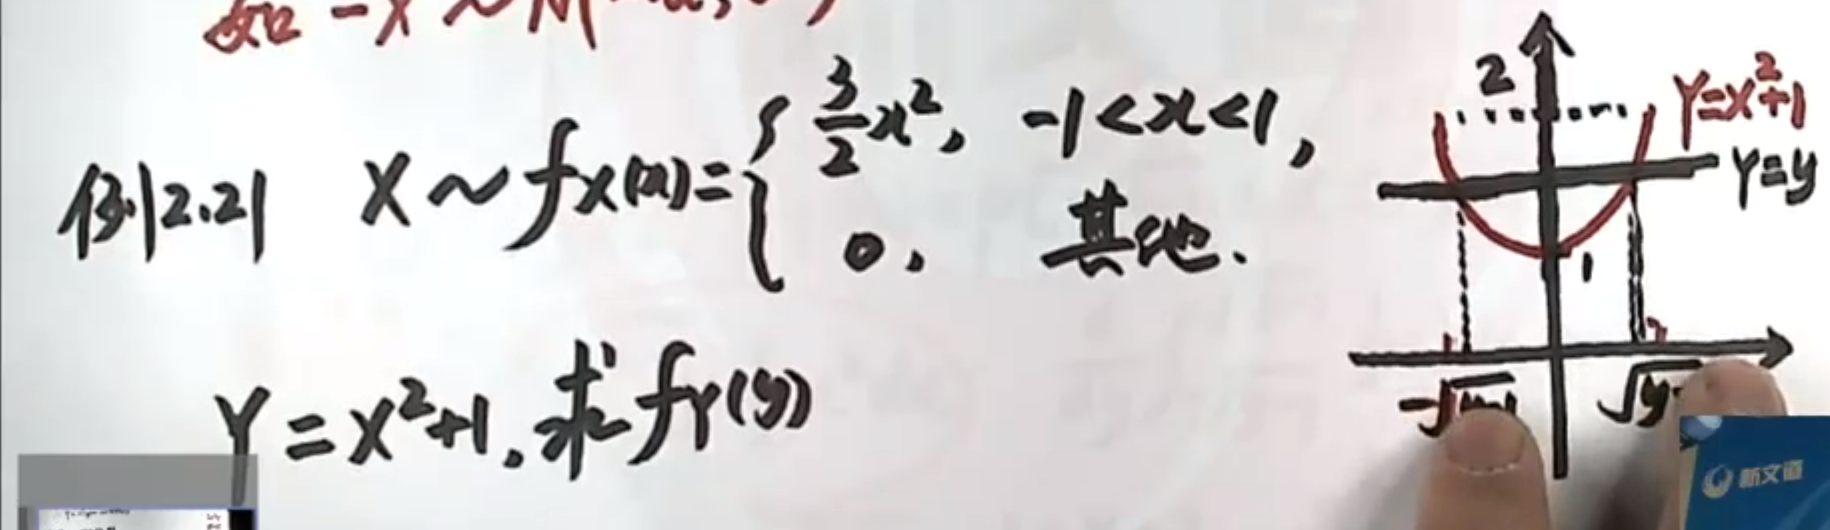 如 -X ~ N(
例12.21 X ~ fX(x) = { 3/2 x², -1<x<1,
0, 其他.
Y = X²+1, 求 fY(y)
2
Y=X²+1
Y=y
1
-√y-1
√y-
新文道